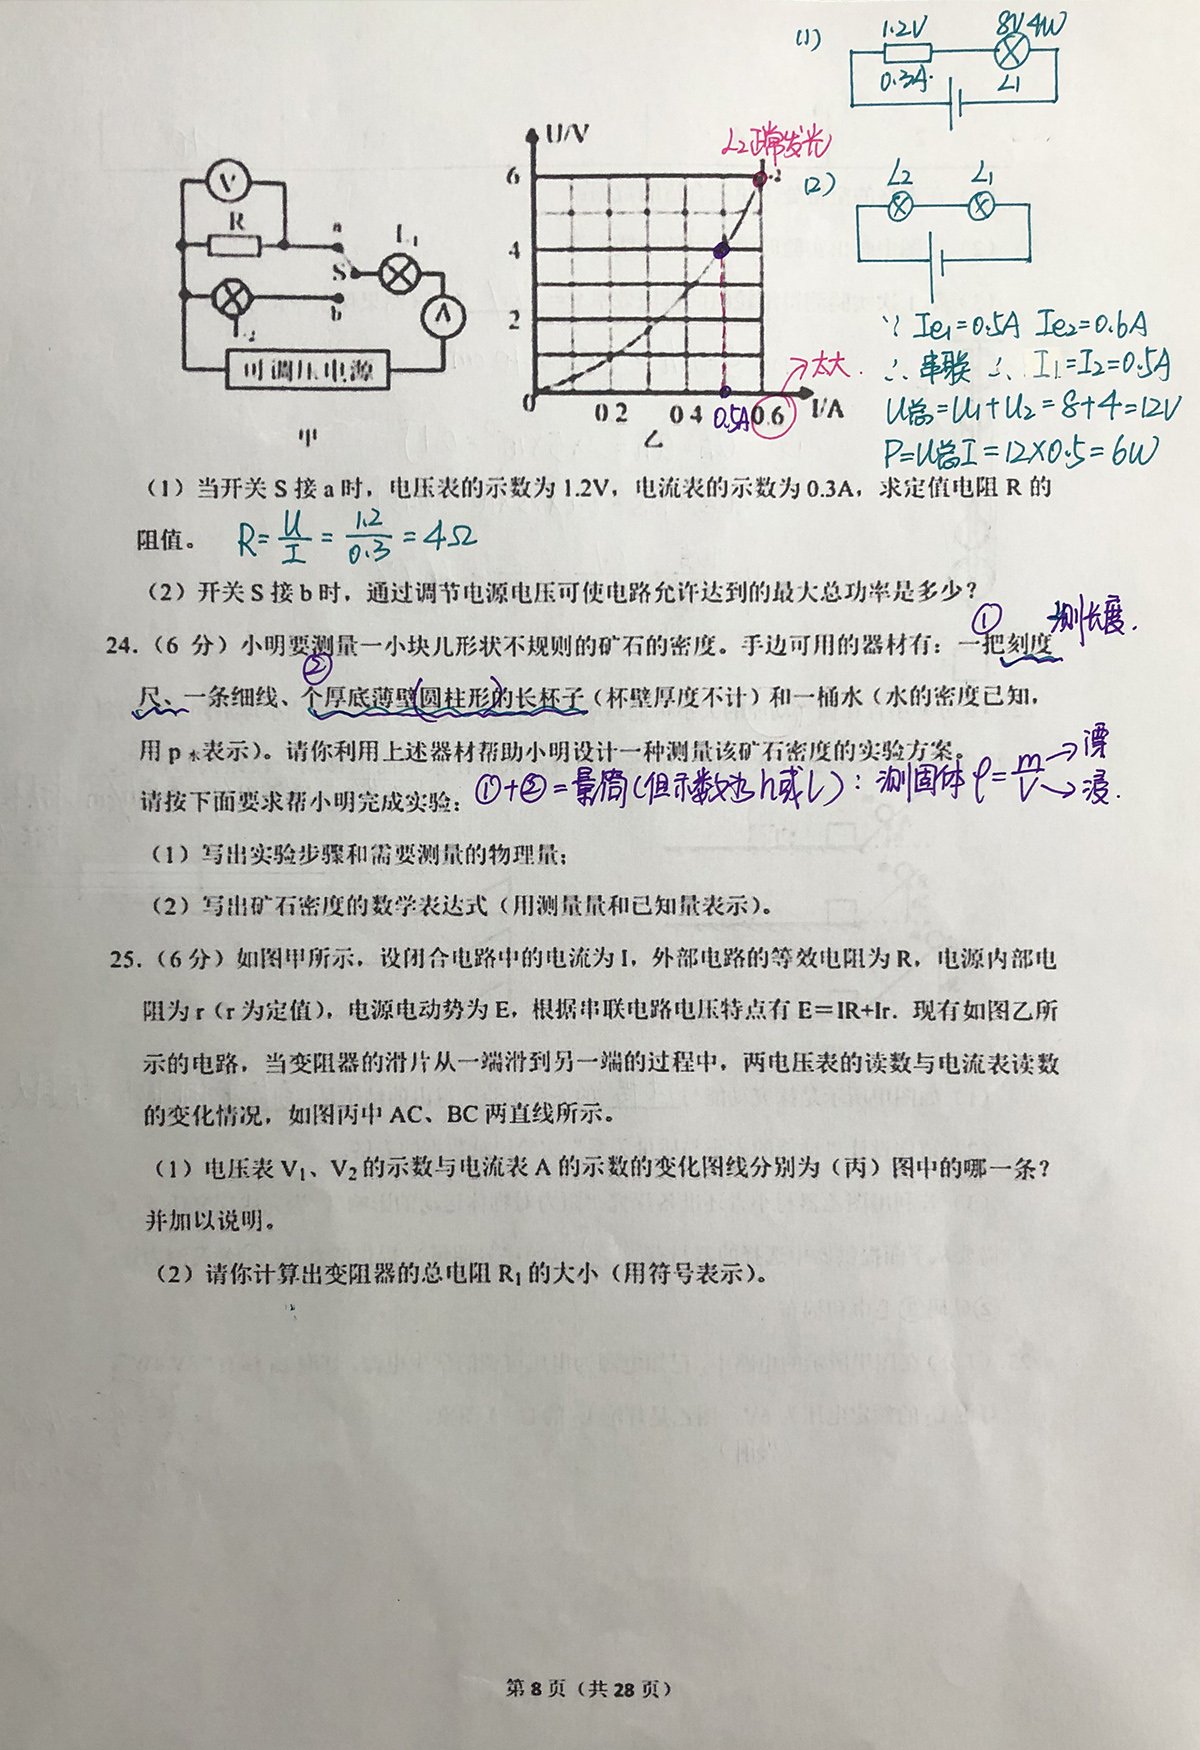 (1) 1.2V 8V 4W
0.3A. L1
U/V
L2正常发光
6
4
2
0 0.2 0.4 0.5A 0.6 I/A
太大.
乙
V
R a L1
S
b A
L2
可调压电源
甲
(2) L2 L1
∵ Ie1=0.5A Ie2=0.6A
∴ 串联 ∴ I1=I2=0.5A
U总=U1+U2=8+4=12V
P=U总I=12×0.5=6W
（1）当开关 S 接 a 时，电压表的示数为 1.2V，电流表的示数为 0.3A，求定值电阻 R 的
阻值。 R=U/I=1.2/0.3=4Ω
（2）开关 S 接 b 时，通过调节电源电压可使电路允许达到的最大总功率是多少？
① 测长度.
24.（6 分）小明要测量一小块儿形状不规则的矿石的密度。手边可用的器材有：一把刻度
②
尺、一条细线、个厚底薄壁(圆柱形)的长杯子（杯壁厚度不计）和一桶水（水的密度已知，
用 p 水表示）。请你利用上述器材帮助小明设计一种测量该矿石密度的实验方案。
①+②=量筒(但示数为h或l)：测固体 ρ=m/V →漂 →浸.
请按下面要求帮小明完成实验：
（1）写出实验步骤和需要测量的物理量；
（2）写出矿石密度的数学表达式（用测量量和已知量表示）。
25.（6 分）如图甲所示，设闭合电路中的电流为 I，外部电路的等效电阻为 R，电源内部电
阻为 r（r 为定值），电源电动势为 E，根据串联电路电压特点有 E＝IR+Ir．现有如图乙所
示的电路，当变阻器的滑片从一端滑到另一端的过程中，两电压表的读数与电流表读数
的变化情况，如图丙中 AC、BC 两直线所示。
（1）电压表 V1、V2 的示数与电流表 A 的示数的变化图线分别为（丙）图中的哪一条？
并加以说明。
（2）请你计算出变阻器的总电阻 R1 的大小（用符号表示）。
第 8 页（共 28 页）